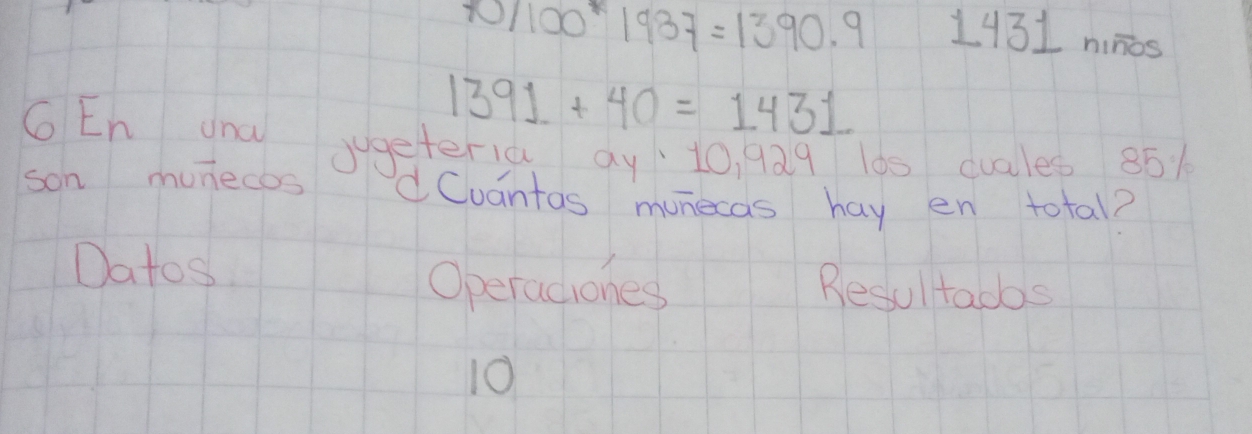 70/100* 1987=1390.9 1431 niños
1391 + 40 = 1431
6 En una jugeteria ay. 10,929 los cuales 85%
son muñecos ¿Cuántas muñecas hay en total?
Datos Operaciones Resultados
10